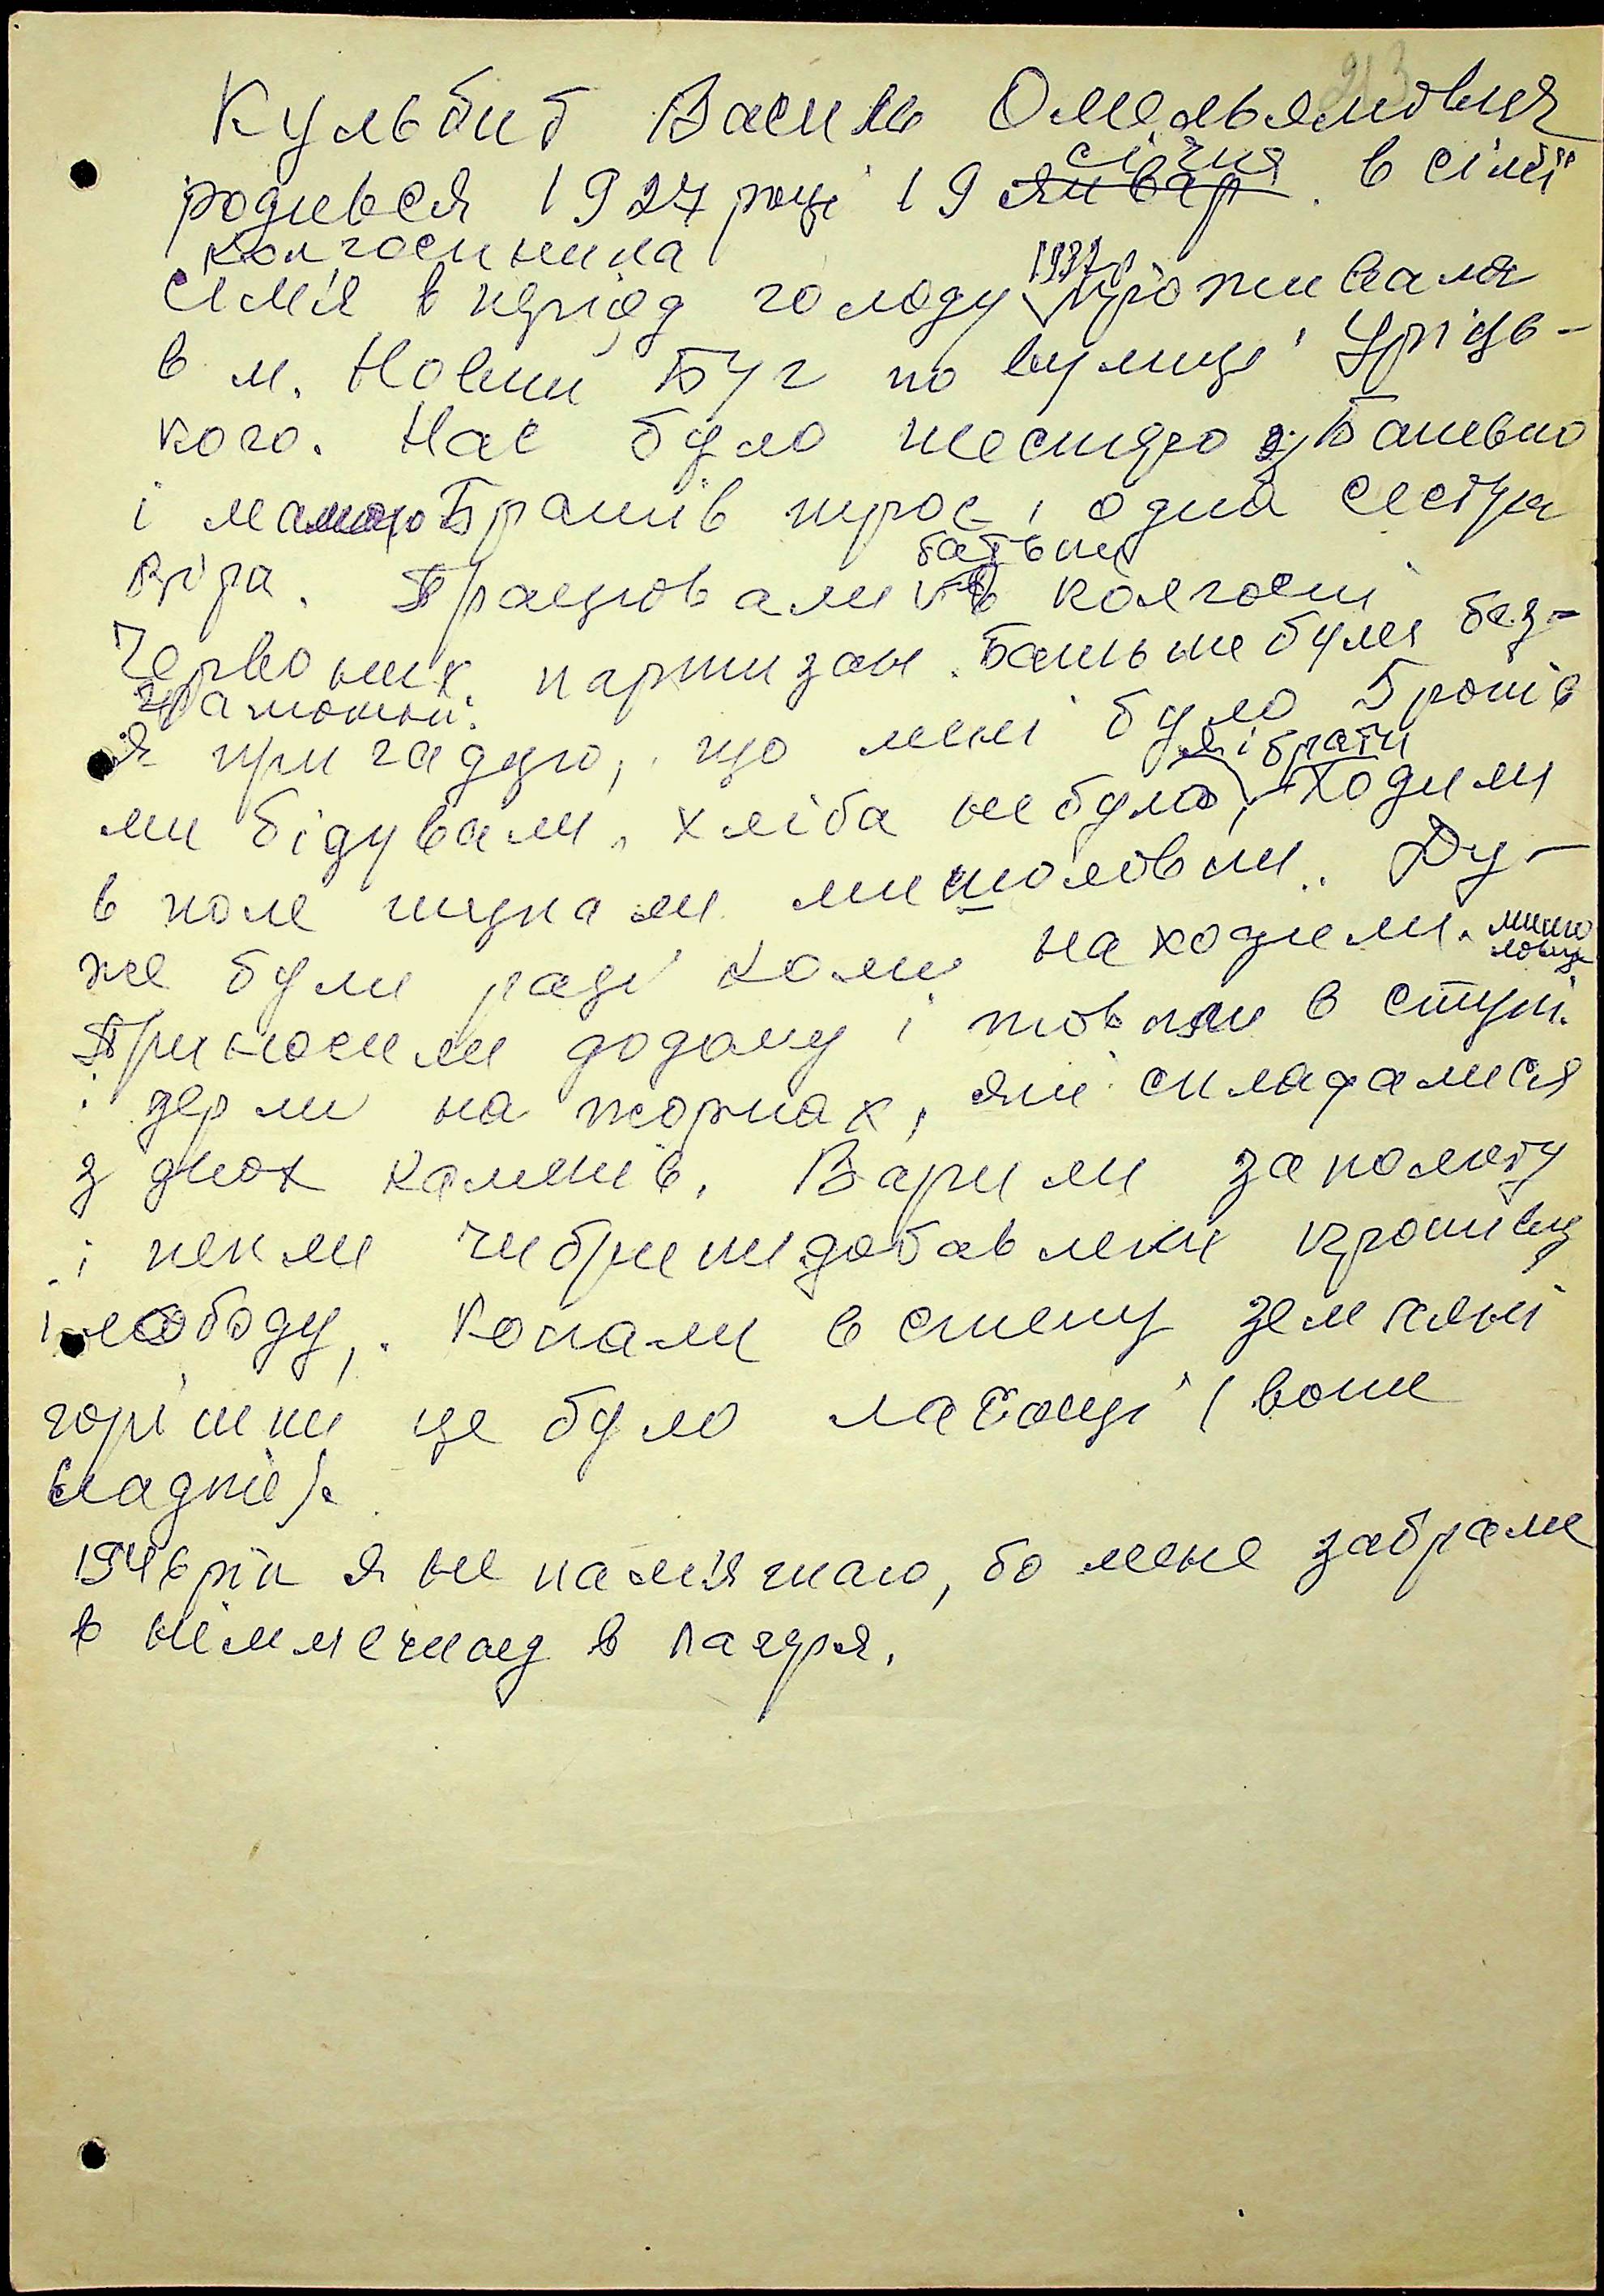 213
Кульбит Василь Омельянович
родився 1927 році 19 январ січня. в сімї
колгоспника
сімя в період голоду 1932 р проживала
в м. Новий Буг по вулиці Уріць-
кого. Нас було шестеро з Батько
і мамою Братів троє і одна сестра
Віра. Працювали батьки в колгоспі
Червоних партизан. Батьки були без-
грамотні.
Я пригадую, що мені було 5 років
ми бідували, хліба не було, я і брати ходили
в поле шукали мишоловки. Ду-
же були раді коли находили. мишо
ловку
Приносили додому і товкли в ступі.
і дерли на жорнах, які складалися
з двох каменів. Варили заколоту
і пекли чибрики добавляли кропиву
і лободу,. Копали в степу земляні
горішки це було ласощі (вони
сладкіе).
1946 рік я не памятаю, бо мене забрали
в німмечину в лагеря.